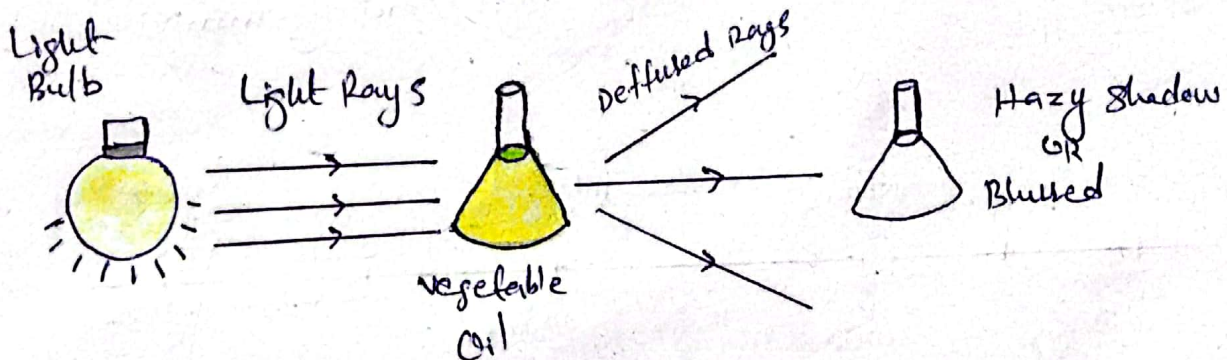 Light
Bulb
Light Rays
Deffused Rays
Hazy Shadow
OR
Blussed
vegetable
Oil